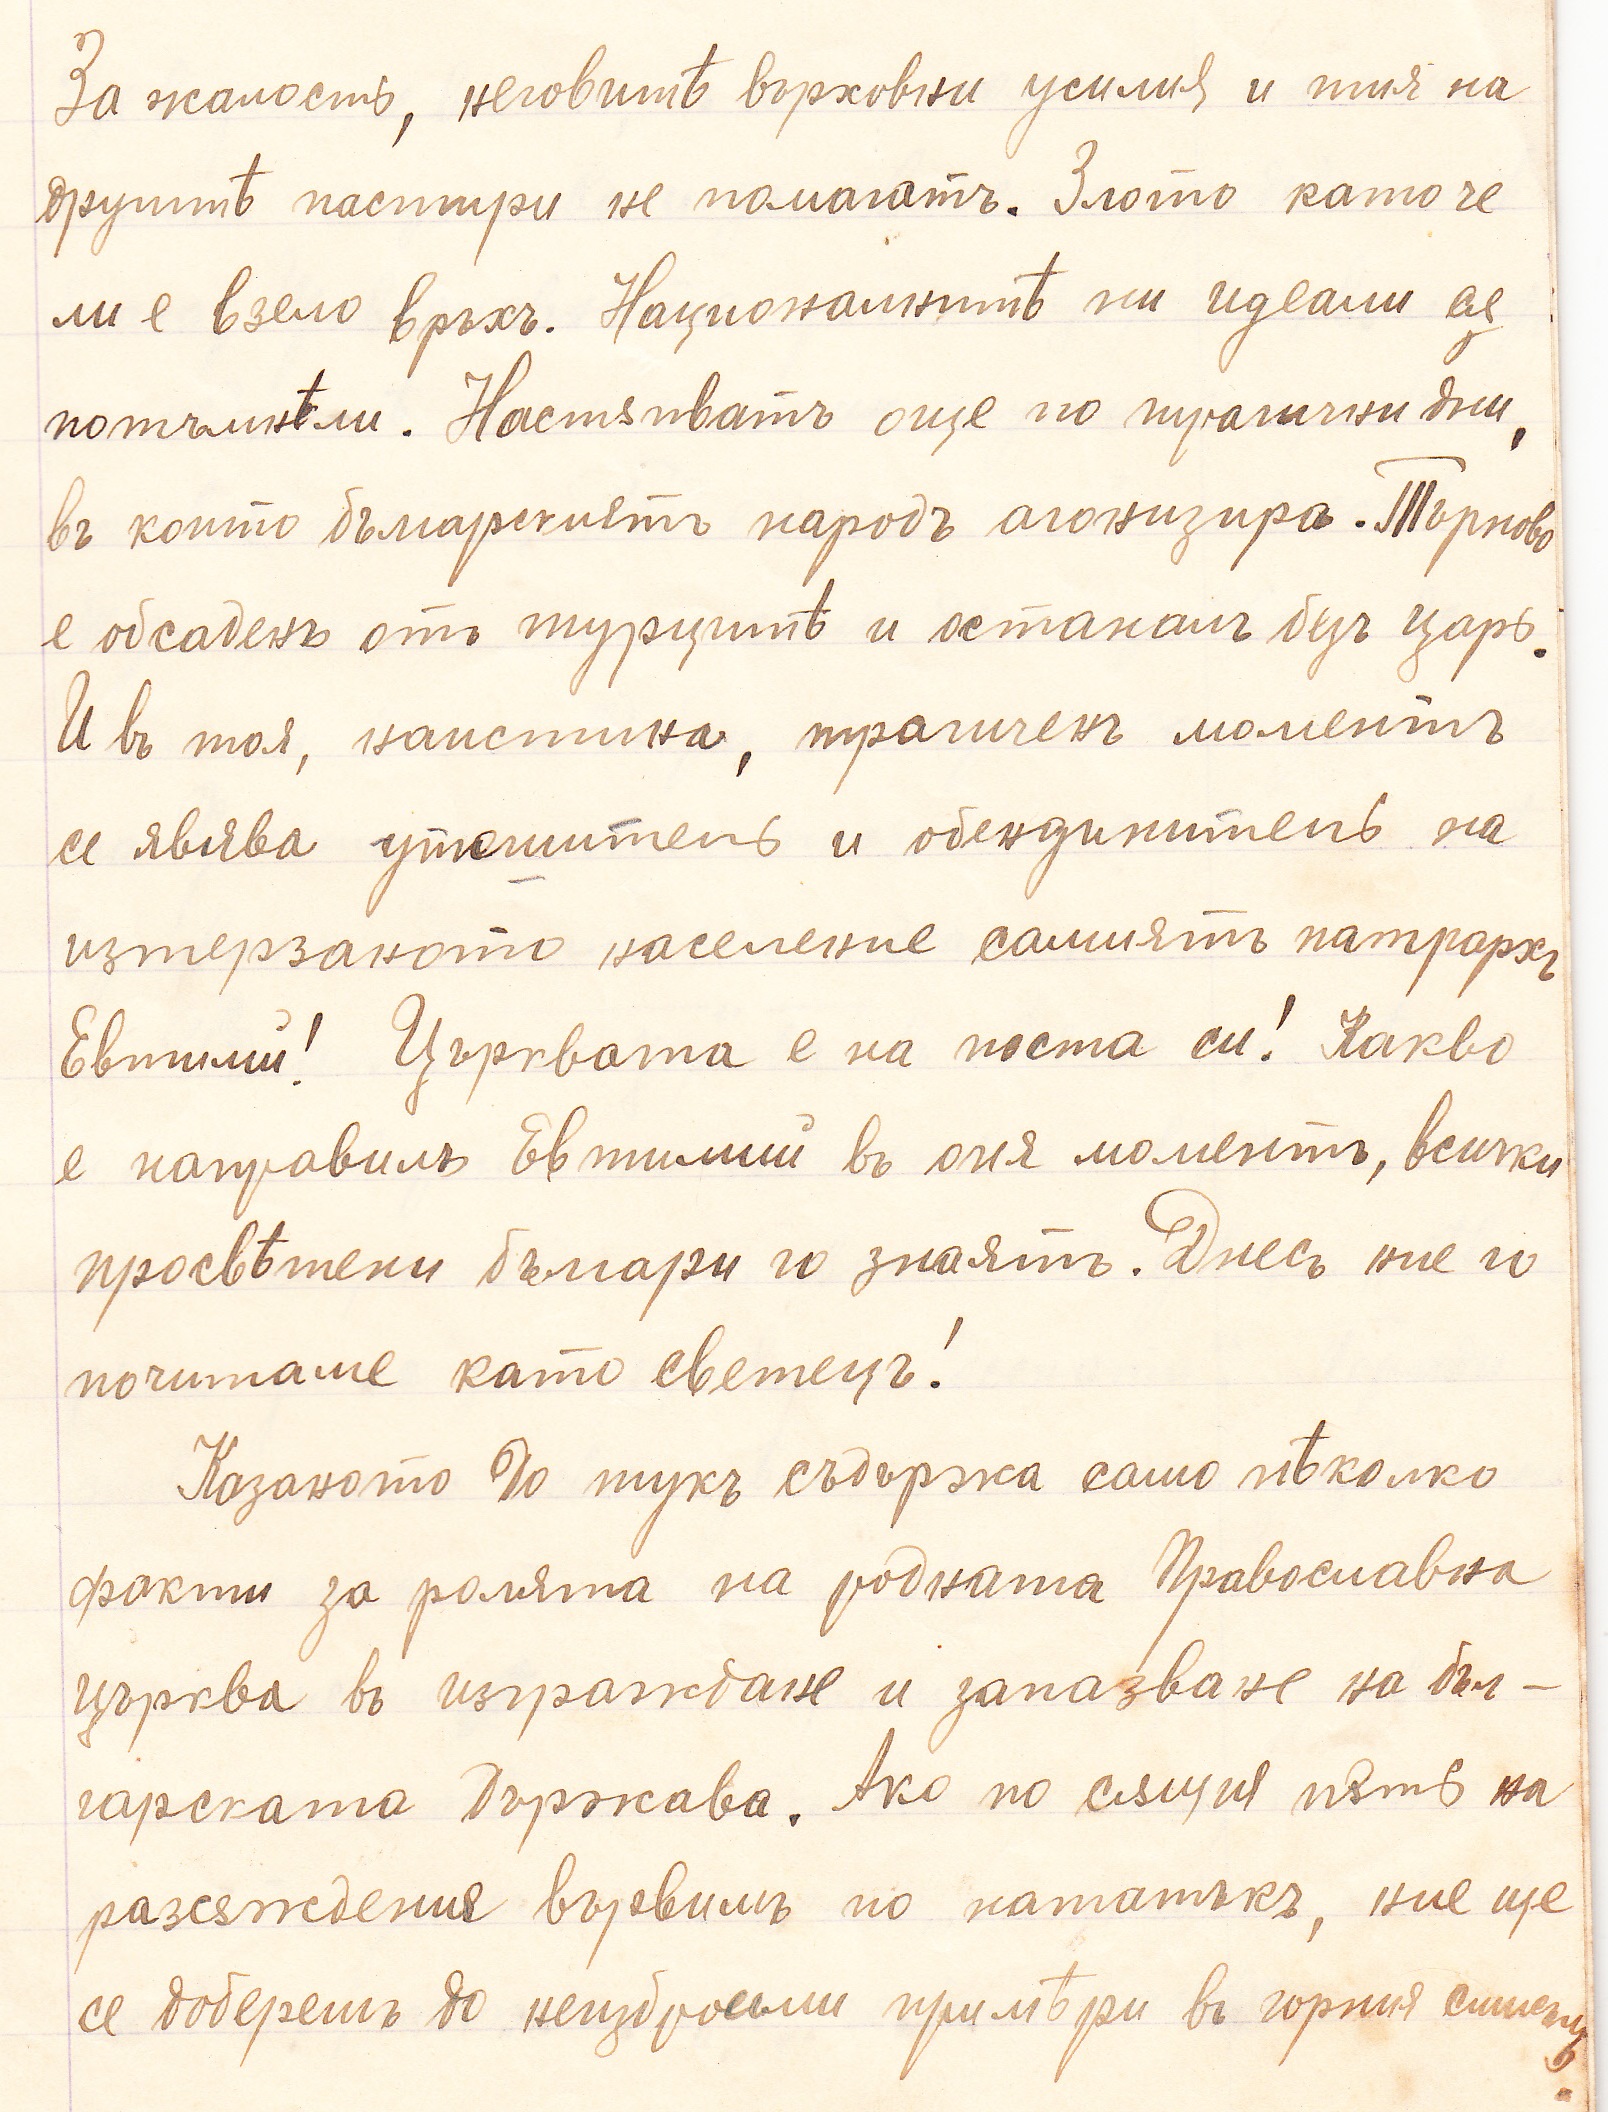 За жалость, неговитѣ върховни усилия и тия на
другитѣ пастири не помагатъ. Злото като че
ли е взело връхъ. Националнитѣ ни идеали сѫ
потъмнѣли. Настѫпватъ още по трагични дни,
въ които българскиятъ народъ агонизира. Търново
е обсаденъ отъ турцитѣ и останалъ безъ царь.
И въ тоя, наистина, трагиченъ моментъ
се явява утешитель и обендинитель на
изтерзаното население самиятъ патрархъ
Евтимий! Църквата е на поста си! Какво
е направилъ Евтимий въ оня моментъ, всички
просвѣтени българи го знаятъ. Днесъ ние го
почитаме като светецъ!
Казаното до тукъ съдържа само нѣколко
факти за ролята на родната Православна
църква въ изграждане и запазване на бъл-
гарската държава. Ако по сѫщия пѫть на
разсѫждения вървимъ по нататъкъ, ние ще
се доберемъ до неизброими примѣри въ горния смисълъ.